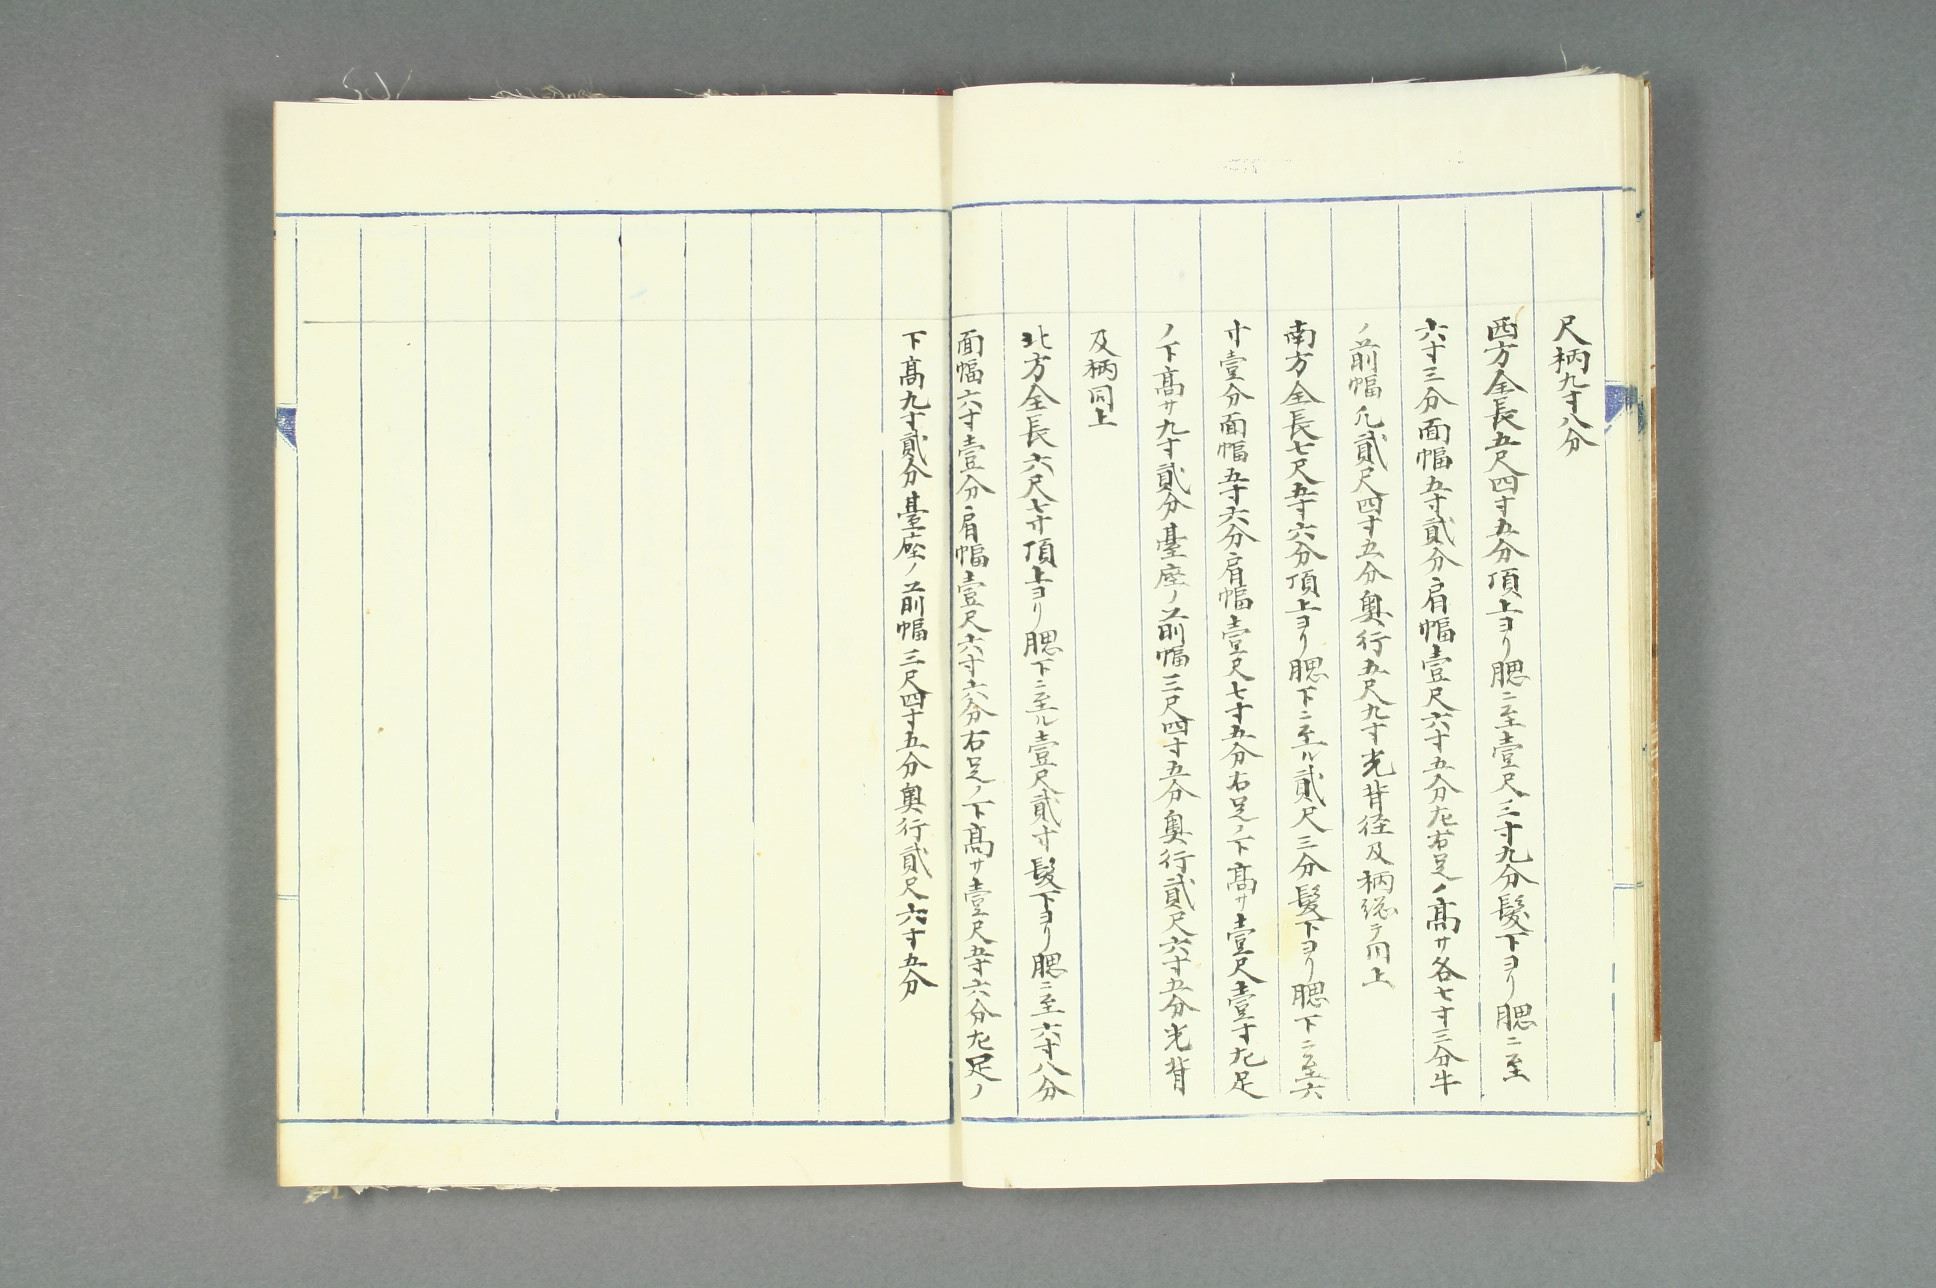 尺柄九寸八分
西方全長五尺四寸五分頂上ヨリ腮ニ至壹尺三寸九分髮下ヨリ腮ニ至
六寸三分面幅五寸貳分肩幅壹尺六寸五分左右足ノ高サ各七寸三分牛
ノ前幅凡貳尺四寸五分奧行五尺九寸光背径及柄総テ同上
南方全長七尺五寸六分頂上ヨリ腮下ニ至ル貳尺三分髮下ヨリ腮下ニ至六
寸壹分面幅五寸六分肩幅壹尺七寸五分右足ノ下高サ壹尺壹寸左足
ノ下高サ九寸貳分臺座ノ前幅三尺四寸五分奧行貳尺六寸五分光背
及柄同上
北方全長六尺七寸頂上ヨリ腮下ニ至ル壹尺貳寸髮下ヨリ腮ニ至六寸八分
面幅六寸壹分肩幅壹尺六寸六分右足ノ下高サ壹尺五寸六分左足ノ
下高九寸貳分臺座ノ前幅三尺四寸五分奧行貳尺六寸五分